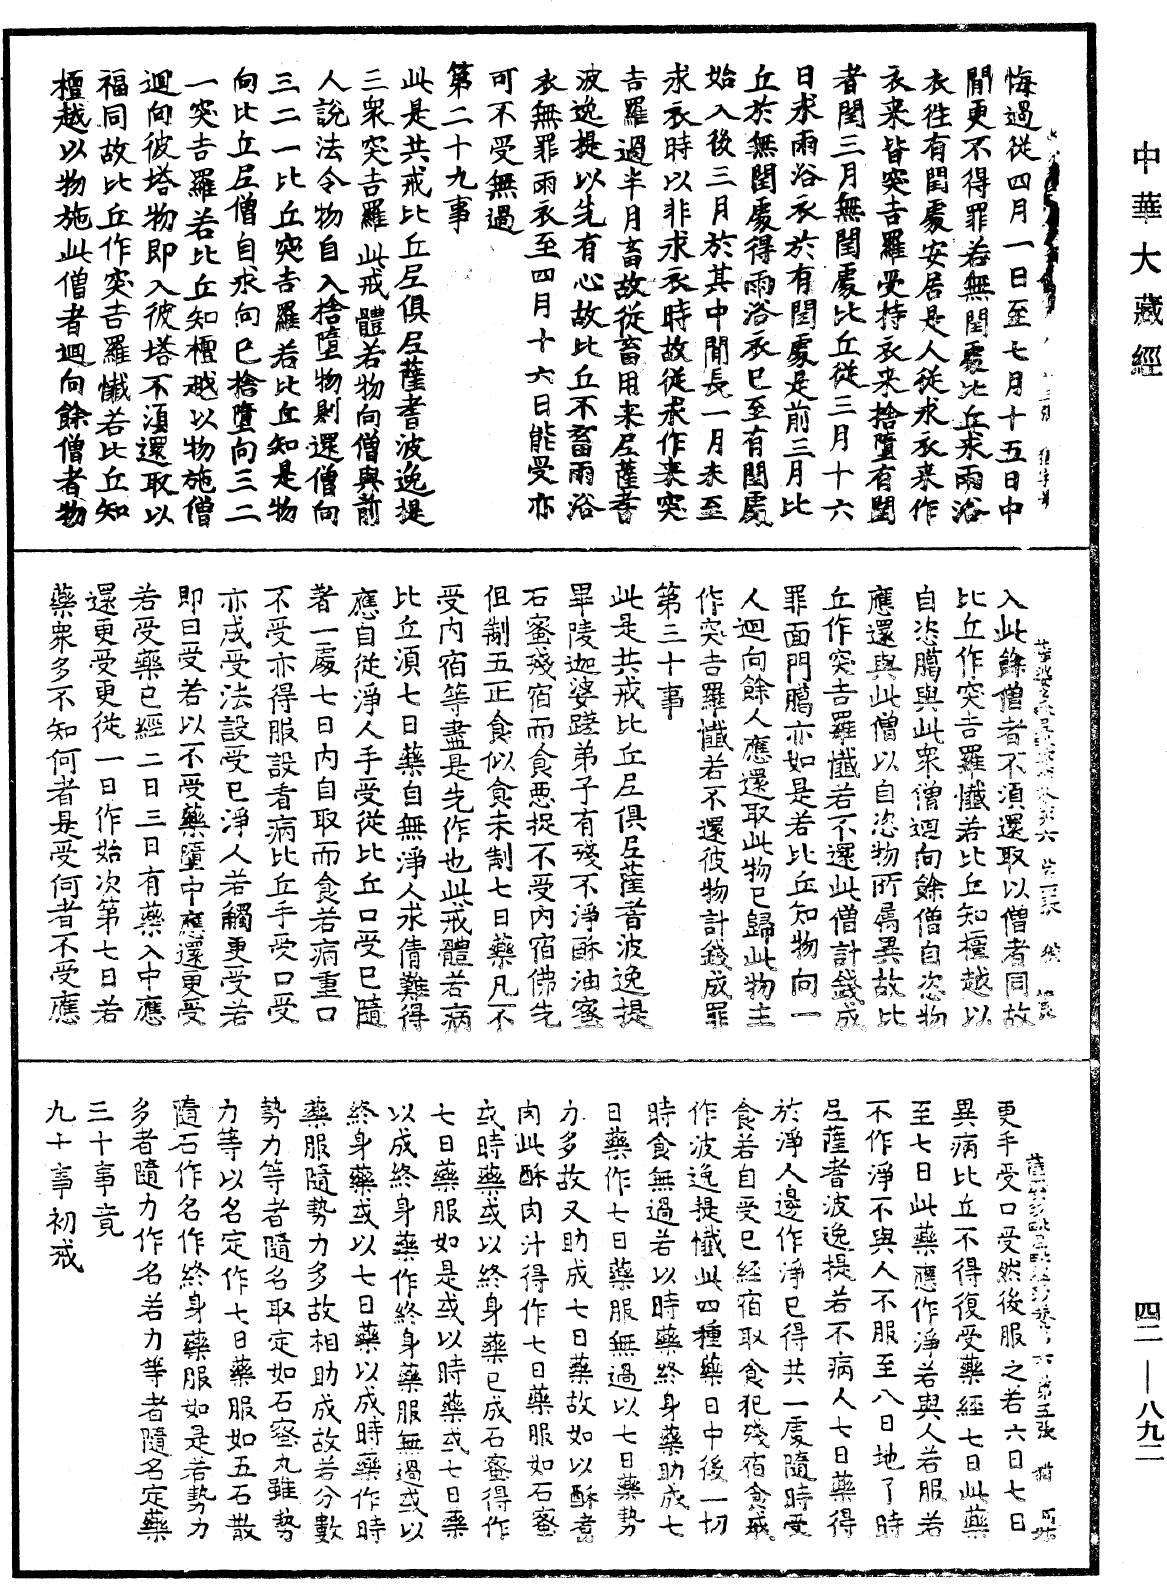 中華大藏經
悔過從四月一日至七月十五日中
閒更不得罪若無閏處比丘求雨浴
衣往有閏處安居是人從求衣來作
衣来皆突吉羅受持衣来捨墮有閏
者閏三月無閏處比丘從三月十六
日求雨浴衣於有閏處是前三月比
丘於無閏處得雨浴衣已至有閏處
始入後三月於其中閒長一月未至
求衣時以非求衣時故從求作来突
吉羅過半月畜故從畜用来尼薩耆
波逸提以先有心故比丘不畜雨浴
衣無罪雨衣至四月十六日能受亦
可不受無過
第二十九事
此是共戒比丘尼俱尼薩耆波逸提
三衆突吉羅此戒體若物向僧與前
人說法令物自入捨墮物則還僧向
三二一比丘突吉羅若比丘知是物
向比丘尼僧自求向已捨墮向三二
一突吉羅若比丘知檀越以物施僧
迴向彼塔物即入彼塔不湏還取以
福同故比丘作突吉羅懺若比丘知
檀越以物施此僧者迴向餘僧者物
入此餘僧者不湏還取以僧者同故
比丘作突吉羅懺若比丘知檀越以
自恣臈與此衆僧迴向餘僧自恣物
應還與此僧以自恣物所屬異故比
丘作突吉羅懺若不還此僧計錢成
罪面門臈亦如是若比丘知物向一
人迴向餘人應還取此物已歸此物主
作突吉羅懺若不還彼物計錢成罪
第三十事
此是共戒比丘尼俱尼薩耆波逸提
畢陵迦婆蹉弟子有殘不淨酥油蜜
石蜜殘宿而食惡捉不受内宿佛先
但制五正食似食未制七日藥凡不
受内宿等盡是先作也此戒體若病
比丘湏七日藥自無淨人求倩難得
應自從淨人手受從比丘口受已隨
著一處七日内自取而食若病重口
不受亦得服設看病比丘手受口受
亦成受法設受已淨人若觸更受若
即日受若以不受藥墮中應還更受
若受藥已經二日三日有藥入中應
還更受更從一日作始次第七日若
藥衆多不知何者是受何者不受應
更手受口受然後服之若六日七日
異病比丘不得復受藥經七日此藥
至七日此藥應作淨若與人若服若
不作淨不與人不服至八日地了時
尼薩耆波逸提若不病人七日藥得
於淨人邊作淨已得共一處隨時受
食若自受已經宿取食犯殘宿食戒
作波逸提懺此四種藥日中後一切
時食無過若以時藥終身藥助成七
日藥作七日藥服無過以七日藥勢
力多故又助成七日藥故如以酥煮
肉此酥肉汁得作七日藥服如石蜜
或時藥或以終身藥已成石蜜得作
七日藥服如是或以時藥或七日藥
以成終身藥作終身藥服無過或以
終身藥或以七日藥以成時藥作時
藥服隨勢力多故相助成故若分數
勢力等者隨名取定如石蜜丸雖勢
力等以名定作七日藥服如五石散
隨石作名作終身藥服如是若勢力
多者隨力作名若力等者隨名定藥
三十事竟
九十事初戒
四二—八九二